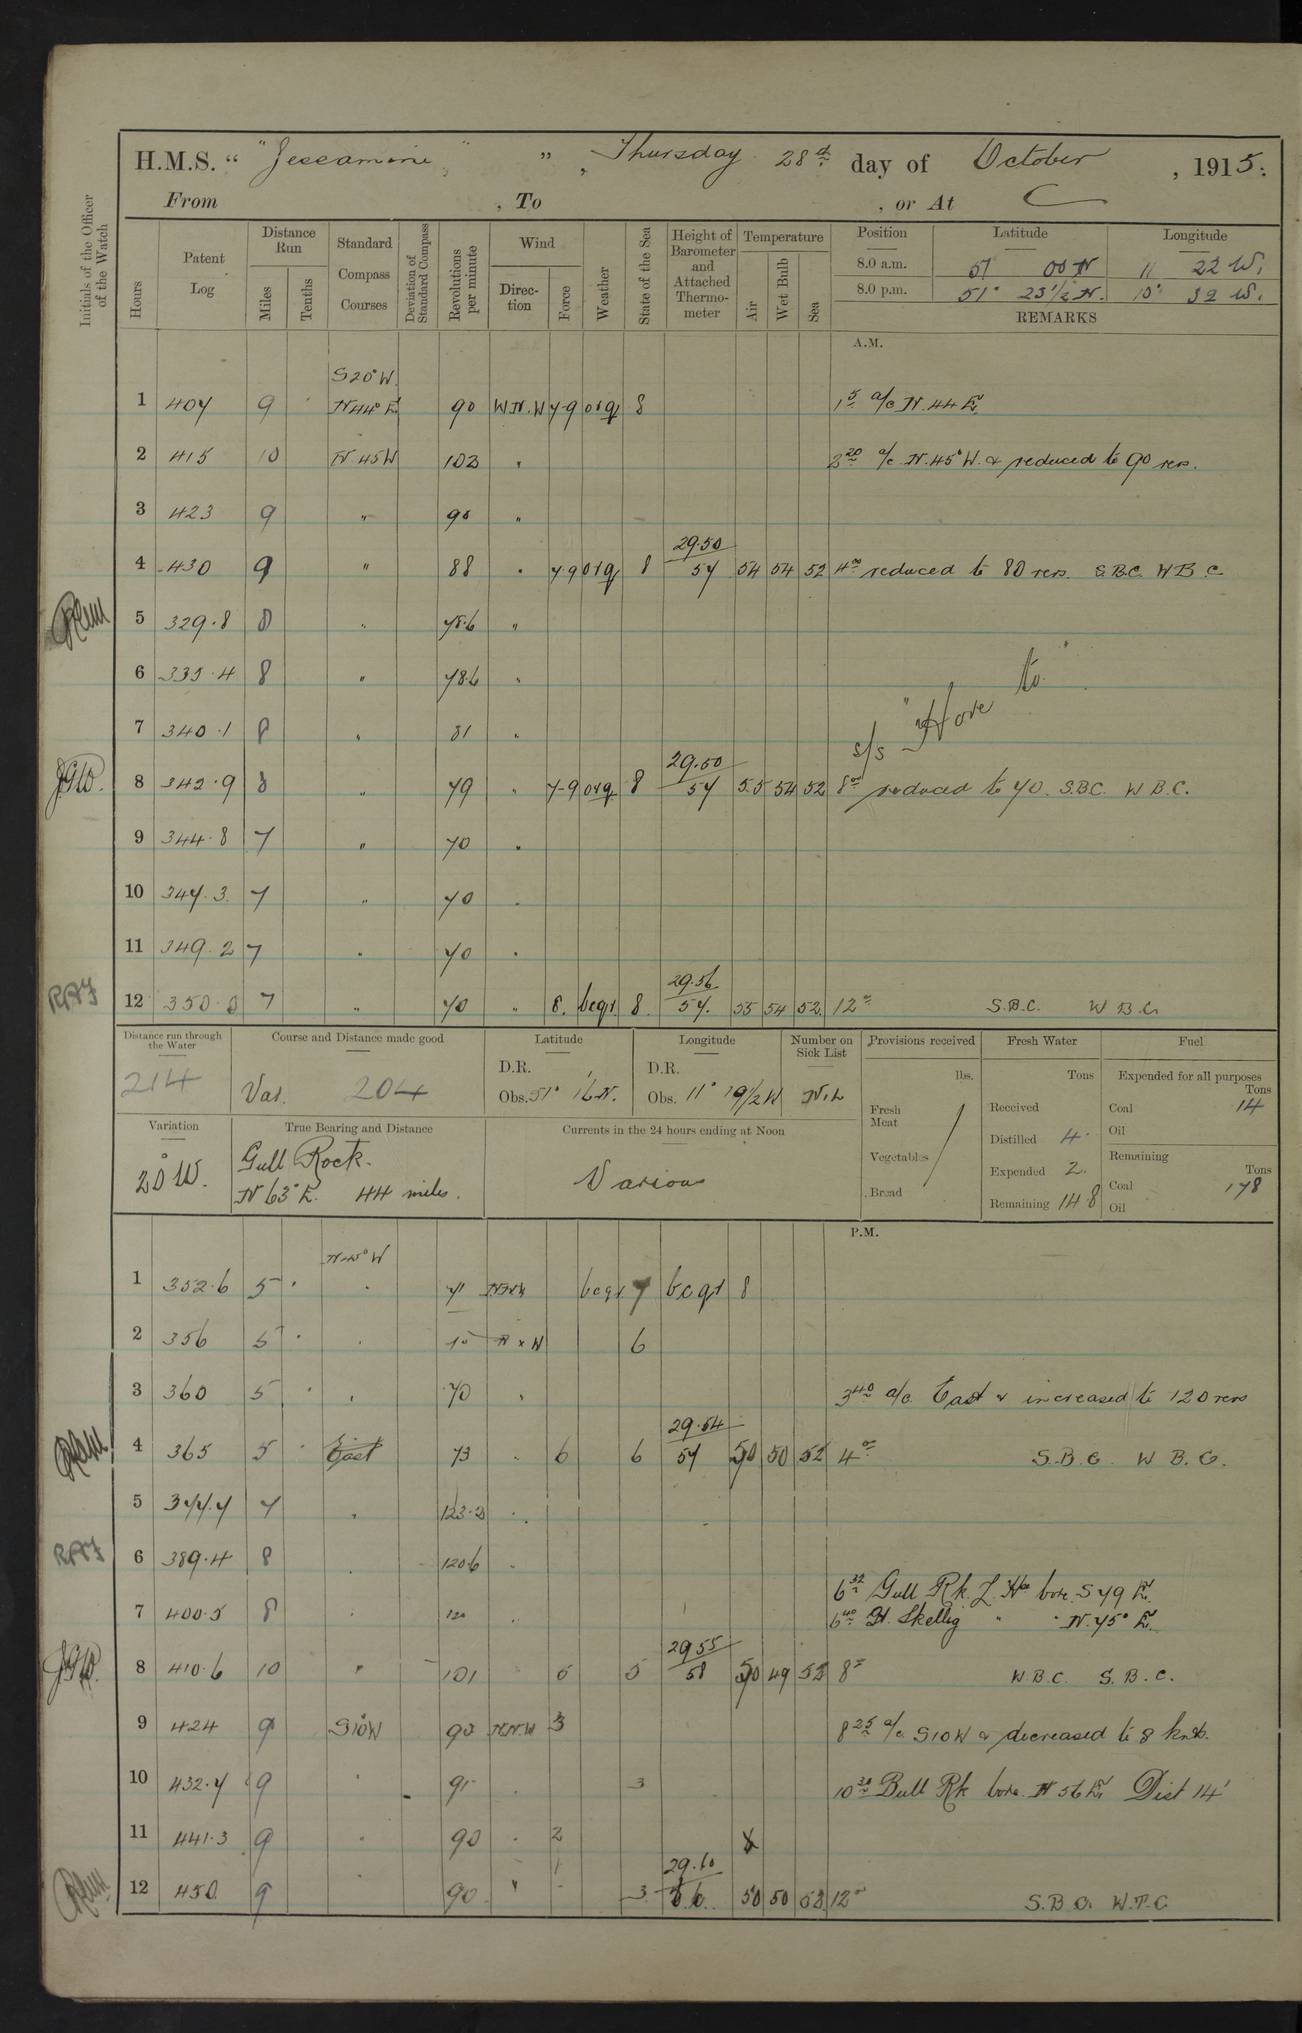 H.M.S. " "Jessamine" " , Thursday 28th day of October , 1915.
From , To , or At
Initials of the Officer of the Watch
Hours
Patent Log
Distance Run
Miles
Tenths
Standard Compass Courses
Deviation of Standard Compass
Revolutions per minute
Wind
Direction
Force
Weather
State of the Sea
Height of Barometer and Attached Thermometer
Temperature
Air
Wet Bulb
Sea
Position Latitude Longitude
8.0 a.m. 51 00 N 11 22 W.
8.0 p.m. 51° 23 1/2 N. 10° 32 W.
REMARKS
A.M.
S20°W.
1 407 9 N44°E 90 W.N.W 7-9 orq 8 1 5 a/c N.44 E
2 415 10 N 45W 102 " 2 20 a/c N.45°W. & reduced to 90 revs.
3 423 9 " 90 "
29.50
4 430 9 " 88 " 7-9 orq 8 57 54 54 52 4 00 reduced to 80 revs. S.B.C. W B.C
5 329.8 8 " 78.6 "
6 335.4 8 " 78.6 "
7 340.1 8 " 81 "
s/s "Hove to"
29.50
J.G.W. 8 342.9 8 " 79 " 7-9 orq 8 57 55 54 52 8 00 reduced to 70. S.B.C. W B.C.
9 344.8 7 " 70 "
10 347.3 7 " 70 "
11 349.2 7 " 70 "
29.56
12 350.0 7 " 70 " 8. bcqr 8. 57. 55 54 52. 12 00 S.B.C. W B.C.
Distance run through the Water
214
Course and Distance made good
Var. 204
Latitude
D.R.
Obs. 51° 16 N.
Longitude
D.R.
Obs. 11° 19 1/2 W
Number on Sick List
Nil
Provisions received
lbs.
Fresh Meat
Vegetables
Bread
Fresh Water
Tons
Received
Distilled 4.
Expended 2.
Remaining 148
Fuel
Expended for all purposes
Tons
Coal 14
Oil
Remaining
Tons
Coal 178
Oil
Variation
20°W.
True Bearing and Distance
Gull Rock.
N 63°E. 44 miles.
Currents in the 24 hours ending at Noon
Various
P.M.
N45°W
1 352.6 5 " 71 bcqr 7 bcqr 8
2 356 5 " N x W 6
3 360 5 " 70 " 3 40 a/c East & increased to 120 revs
29.54
4 365 5 East 73 " 6 6 57 50 50 52 4 00 S.B.C. W B.C.
5 377.7 7 " 123.2 "
6 389.4 8 120.6 "
6 32 Gull Rk. L. Ho bore S 79 E
7 400.5 8 " 120 " 6 40 Gt. Skellig " " N.75° E.
29.55
J.G.W. 8 410.6 10 " 101 5 5 58 50 49 52 8 00 W.B.C. S.B.C.
9 424 9 S10W 90 N.N.W 3 8 25 a/c S10W & decreased to 8 knts.
10 432.7 9 " 91 " 3 10 30 Bull Rk bore N 56 E Dist 14'
11 441.3 9 " 90 " 2
29.60
12 450 9 90 " 1 3 56 50 50 53 12 00 S.B.C. W.T.C